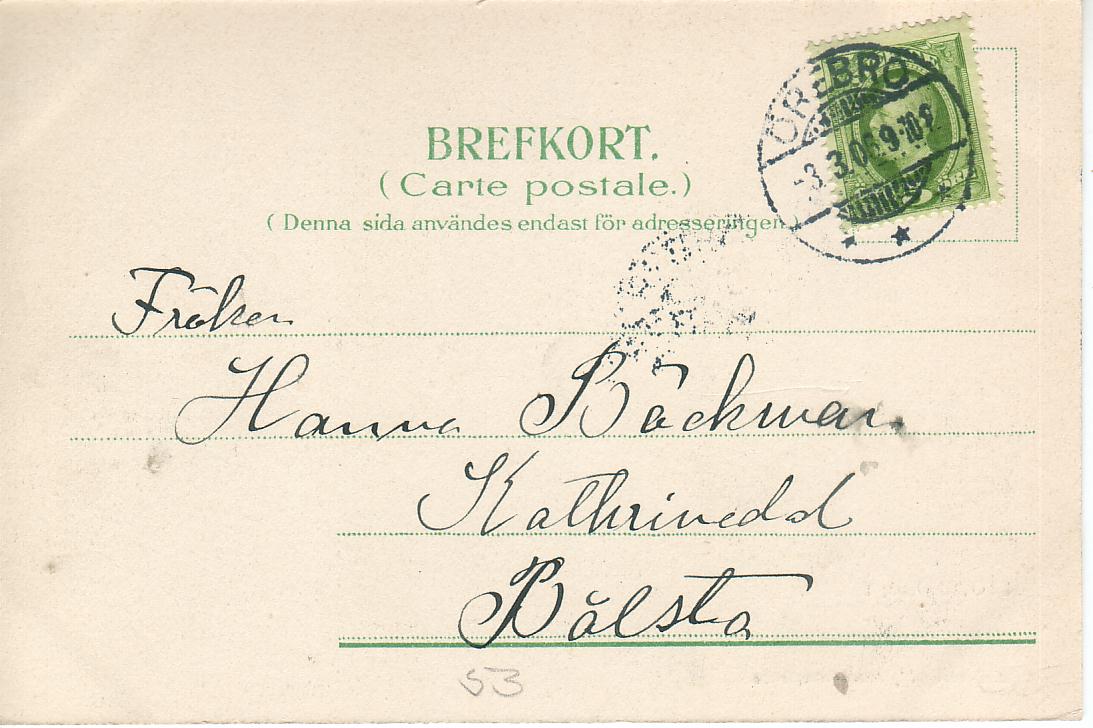 BREFKORT.
(Carte postale.)
(Denna sida användes endast för adresseringen.)
ÖREBRO
Fröken
Hanna Bäckman.
Kathrinedal
Bålsta
53